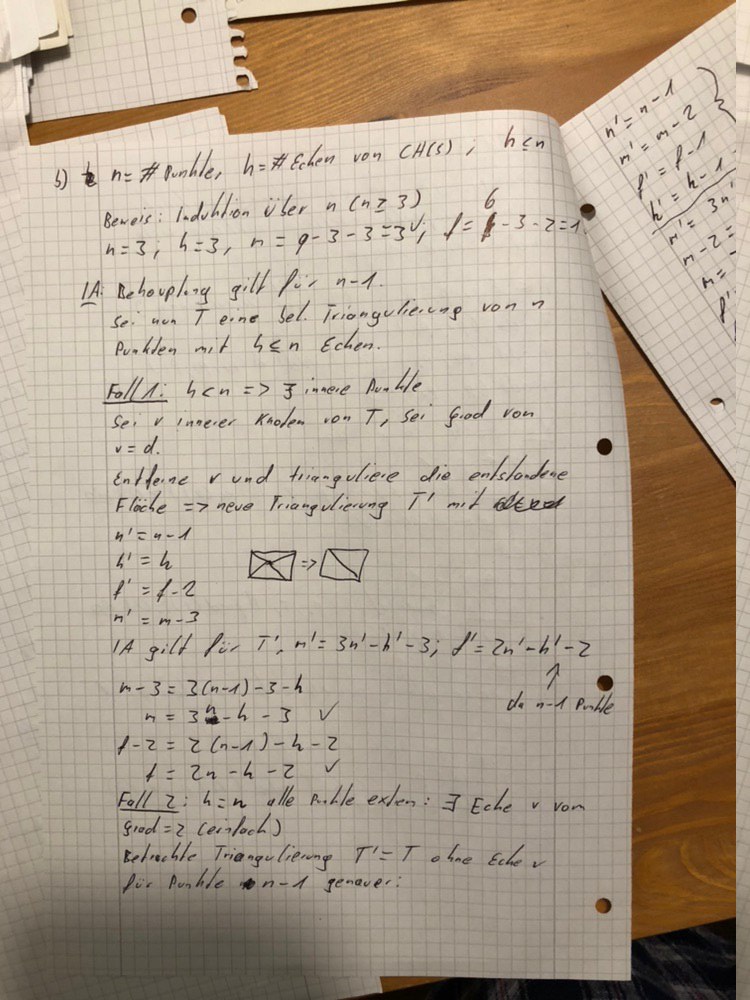 b) n = # Punkte, h = # Ecken von CH(S) ; h ≤ n
Beweis: Induktion über n (n ≥ 3)
n=3 ; h=3 , m = 9-3-3=3 ✓; f = 6-3-2=1
IA: Behauptung gilt für n-1.
Sei nun T eine bel. Triangulierung von n
Punkten mit h ≤ n Ecken.
Fall 1: h < n => ∃ innere Punkte
Sei v innerer Knoten von T, sei Grad von
v = d.
Entferne v und trianguliere die entstandene
Fläche => neue Triangulierung T' mit
n' = n-1
h' = h
=>
f' = f-2
m' = m-3
IA gilt für T', m' = 3n'-h'-3; f' = 2n'-h'-2
↑
da n-1 Punkte
m-3 = 3(n-1)-3-h
m = 3n-h-3 ✓
f-2 = 2(n-1)-h-2
f = 2n-h-2 ✓
Fall 2: h=n alle Punkte extrem: ∃ Ecke v vom
Grad=2 (einfach)
Betrachte Triangulierung T'=T ohne Ecke v
für Punkte n-1 genauer:
n' = n-1
m' = m-2
f' = f-1
h' = h-1
m' = 3n'
m-2 =
m =
f'